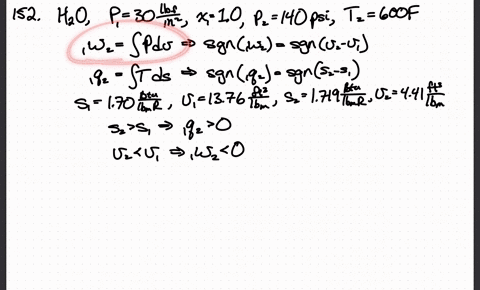 152. H2O, P1 = 30 lbf/in², x1 = 1.0, P2 = 140 psi, T2 = 600F
1w2 = ∫Pdv ⇒ sgn(1w2) = sgn(v2-v1)
1q2 = ∫Tds ⇒ sgn(1q2) = sgn(s2-s1)
s1 = 1.70 Btu/lbmR, v1 = 13.76 ft³/lbm, s2 = 1.719 Btu/lbmR, v2 = 4.41 ft³/lbm
s2 > s1 ⇒ 1q2 > 0
v2 < v1 ⇒ 1w2 < 0